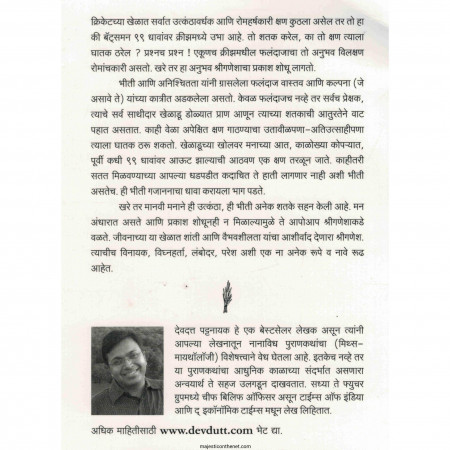 क्रिकेटच्या खेळात सर्वात उत्कंठावर्धक आणि रोमहर्षकारी क्षण कुठला असेल तर तो हा
की बॅट्समन ९९ धावांवर क्रीझमध्ये उभा आहे. तो शतक करेल, का तो क्षण त्याला
घातक ठरेल ? प्रश्नच प्रश्न ! एकूणच क्रीझमधील फलंदाजाचा तो अनुभव विलक्षण
रोमांचकारी असतो. खरे तर हा अनुभव श्रीगणेशाचा प्रकाश शोधू लागतो.
भीती आणि अनिश्चितता यांनी ग्रासलेला फलंदाज वास्तव आणि कल्पना (जे
असावे ते) यांच्या कात्रीत अडकलेला असतो. केवळ फलंदाजच नव्हे तर सर्वच प्रेक्षक,
त्याचे सर्व साथीदार खेळाडू डोळ्यात प्राण आणून त्याच्या शतकाची आतुरतेने वाट
पहात असतात. काही वेळा अपेक्षित क्षण गाठण्याचा उतावीळपणा-अतिउत्साहीपणा
त्याला घातक ठरू शकतो. खेळाडूच्या खोलवर मनाच्या आत, काळोख्या कोपऱ्यात,
पूर्वी कधी ९९ धावांवर आऊट झाल्याची आठवण एक क्षण तरळून जाते. काहीतरी
सतत मिळवण्याच्या आपल्या धडपडीत कदाचित ते हाती लागणार नाही अशी भीती
असतेच. ही भीती गजाननाचा धावा करायला भाग पडते.
खरे तर मानवी मनाने ही उत्कंठा, ही भीती अनेक शतके सहन केली आहे. मन
अंधारात असते आणि प्रकाश शोधूनही न मिळाल्यामुळे ते आपोआप श्रीगणेशाकडे
वळते. जीवनाच्या या खेळात शांती आणि वैभवशीलता यांचा आशीर्वाद देणारा श्रीगणेश.
त्याचीच विनायक, विघ्नहर्ता, लंबोदर, परेश अशी एक ना अनेक रूपे व नावे रूढ
आहेत.
देवदत्त पट्टनायक हे एक बेस्टसेलर लेखक असून त्यांनी
आपल्या लेखनातून नानाविध पुराणकथांचा (मिथ्स-
मायथॉलॉजी) विशेषत्त्वाने वेध घेतला आहे. इतकेच नव्हे तर
या पुराणकथांचा आधुनिक काळाच्या संदर्भात असणारा
अन्वयार्थ ते सहज उलगडून दाखवतात. सध्या ते फ्युचर
ग्रुपमध्ये चीफ बिलिफ ऑफिसर असून टाईम्स ऑफ इंडिया
आणि द् इकॉनॉमिक टाईम्स मधून लेख लिहितात.
अधिक माहितीसाठी www.devdutt.com भेट द्या.
majesticonthenet.com